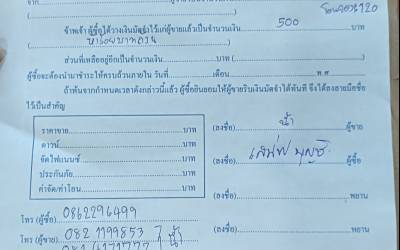 จาก
โอน
ข้าพเจ้า ผู้ซื้อได้วางเงินมัดจำไว้แก่ผู้ขายแล้วเป็นจำนวนเงิน 500 บาท
(ห้าร้อยบาทถ้วน)
ส่วนที่เหลืออยู่อีกเป็นจำนวนเงิน บาท ( )
ผู้ซื้อจะต้องนำมาชำระให้ครบถ้วนภายใน วันที่ เดือน พ.ศ
ถ้าพ้นจากกำหนดเวลาดังกล่าวนี้แล้ว ผู้ซื้อยินยอมให้ผู้ขายริบเงินมัดจำได้ทันที จึงได้ลงลายมือชื่อ
ไว้เป็นสำคัญ
ราคาขาย บาท
(ลงชื่อ) น้ำ ผู้ขาย
ดาวน์ บาท
จัดไฟแนนซ์ บาท
(ลงชื่อ) ผู้ซื้อ
ประกันภัย บาท
(ลงชื่อ) พยาน
ค่าจัด/ค่าโอน บาท
(ลงชื่อ) พยาน
โทร (ผู้ซื้อ) 0862296499
โทร (ผู้ขาย) 082 1199853 น้ำ